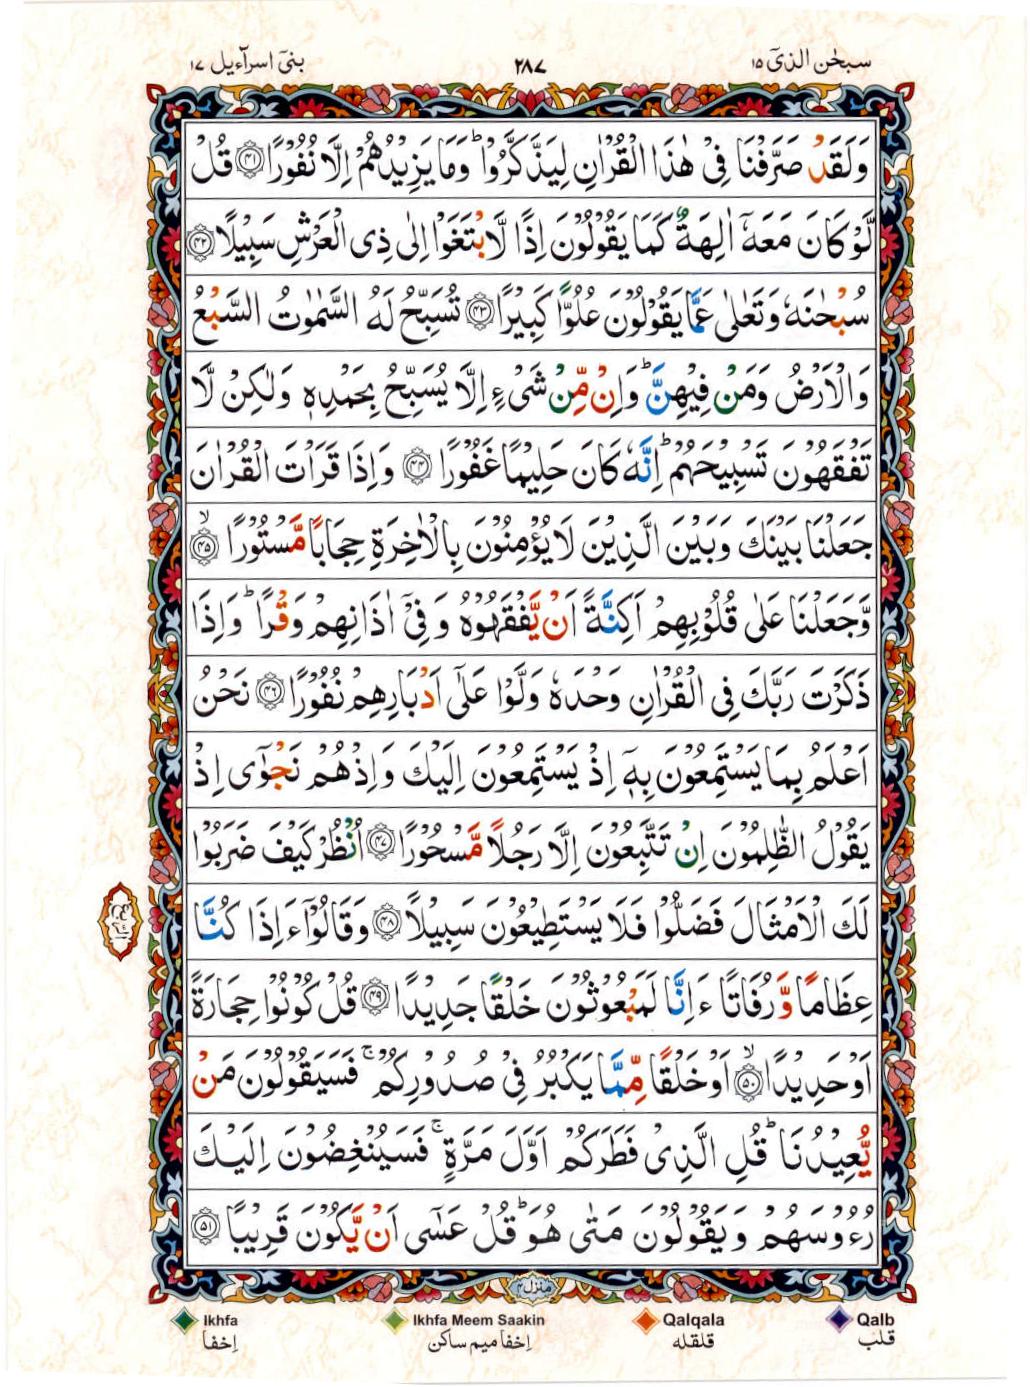 سبحٰن الذیٓ ۱۵
۲۸۷
بنیٓ اسرآءیل ۱۷
وَلَقَدْ صَرَّفْنَا فِیْ هٰذَا الْقُرْاٰنِ لِیَذَّكَّرُوْاؕ وَمَا یَزِیْدُهُمْ اِلَّا نُفُوْرًا ﴿۴۱﴾ قُلْ
لَّوْ كَانَ مَعَهٗۤ اٰلِهَةٌ كَمَا یَقُوْلُوْنَ اِذًا لَّابْتَغَوْا اِلٰى ذِی الْعَرْشِ سَبِیْلًا ﴿۴۲﴾
سُبْحٰنَهٗ وَتَعٰلٰى عَمَّا یَقُوْلُوْنَ عُلُوًّا كَبِیْرًا ﴿۴۳﴾ تُسَبِّحُ لَهُ السَّمٰوٰتُ السَّبْعُ
وَالْاَرْضُ وَمَنْ فِیْهِنَّؕ وَاِنْ مِّنْ شَیْءٍ اِلَّا یُسَبِّحُ بِحَمْدِهٖ وَلٰكِنْ لَّا
تَفْقَهُوْنَ تَسْبِیْحَهُمْؕ اِنَّهٗ كَانَ حَلِیْمًا غَفُوْرًا ﴿۴۴﴾ وَاِذَا قَرَاْتَ الْقُرْاٰنَ
جَعَلْنَا بَیْنَكَ وَبَیْنَ الَّذِیْنَ لَا یُؤْمِنُوْنَ بِالْاٰخِرَةِ حِجَابًا مَّسْتُوْرًاۙ ﴿۴۵﴾
وَّجَعَلْنَا عَلٰى قُلُوْبِهِمْ اَكِنَّةً اَنْ یَّفْقَهُوْهُ وَفِیْۤ اٰذَانِهِمْ وَقْرًاؕ وَاِذَا
ذَكَرْتَ رَبَّكَ فِی الْقُرْاٰنِ وَحْدَهٗ وَلَّوْا عَلٰۤى اَدْبَارِهِمْ نُفُوْرًا ﴿۴۶﴾ نَحْنُ
اَعْلَمُ بِمَا یَسْتَمِعُوْنَ بِهٖۤ اِذْ یَسْتَمِعُوْنَ اِلَیْكَ وَاِذْ هُمْ نَجْوٰۤى اِذْ
یَقُوْلُ الظّٰلِمُوْنَ اِنْ تَتَّبِعُوْنَ اِلَّا رَجُلًا مَّسْحُوْرًا ﴿۴۷﴾ اُنْظُرْ كَیْفَ ضَرَبُوْا
لَكَ الْاَمْثَالَ فَضَلُّوْا فَلَا یَسْتَطِیْعُوْنَ سَبِیْلًا ﴿۴۸﴾ وَقَالُوْۤا ءَاِذَا كُنَّا
عِظَامًا وَّرُفَاتًا ءَاِنَّا لَمَبْعُوْثُوْنَ خَلْقًا جَدِیْدًا ﴿۴۹﴾ قُلْ كُوْنُوْا حِجَارَةً
اَوْ حَدِیْدًاۙ ﴿۵۰﴾ اَوْ خَلْقًا مِّمَّا یَكْبُرُ فِیْ صُدُوْرِكُمْۚ فَسَیَقُوْلُوْنَ مَنْ
یُّعِیْدُنَاؕ قُلِ الَّذِیْ فَطَرَكُمْ اَوَّلَ مَرَّةٍۚ فَسَیُنْغِضُوْنَ اِلَیْكَ
رُءُوْسَهُمْ وَیَقُوْلُوْنَ مَتٰى هُوَؕ قُلْ عَسٰۤى اَنْ یَّكُوْنَ قَرِیْبًا ﴿۵۱﴾
منزل ۴
Ikhfa
Ikhfa Meem Saakin
Qalqala
Qalb
اِخفا
اِخفا میم ساکن
قلقله
قلب